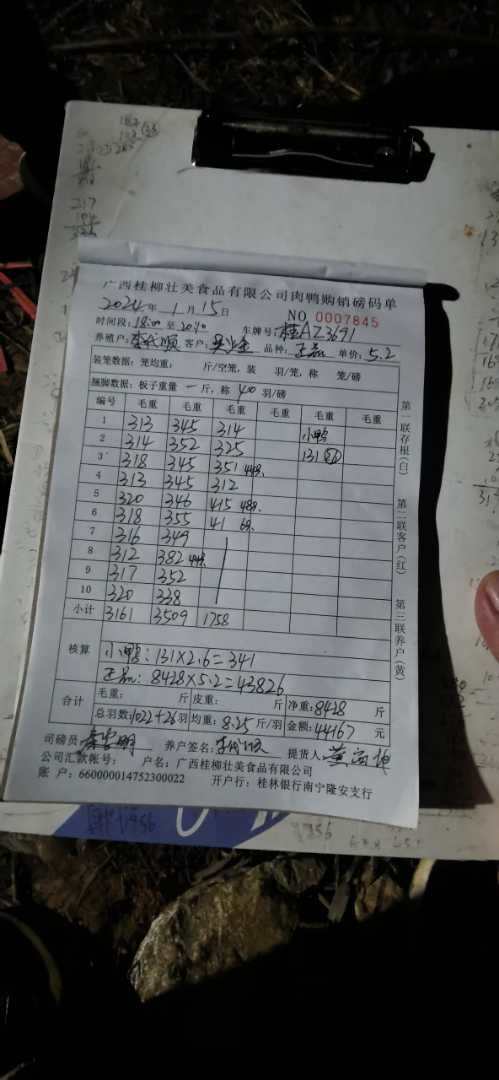 广西桂柳壮美食品有限公司肉鸭购销磅码单
2024年 1月 15日
NO 0007845
时间段:18:00至20:40 车牌号:桂AZ3691
养殖户: 客户: 品种:正品 单价:5.2
装笼数据:笼均重: 斤/空笼,装 羽/笼,称 笼/磅
捆脚数据:板子重量 一 斤,称 40 羽/磅
编号 毛重 毛重 毛重 毛重 毛重 毛重
1 313 345 314 小鸭
2 314 352 325 131
3 318 345 351 44羽
4 313 345 312
5 320 346 415 48羽
6 318 355 41 6羽
7 316 349
8 312 382 44羽
9 317 352
10 320 338
小计 3161 3509 1758
核算 小鸭:131×2.6=341
正品:8428×5.2=43826
合计 毛重: 斤 皮重: 斤 净重:8428 斤
总羽数:1022+26羽 均重:8.25斤/羽 金额:44167 元
司磅员: 养户签名: 提货人:
公司汇款帐号: 户名:广西桂柳壮美食品有限公司
账 户:660000014752300022 开户行:桂林银行南宁隆安支行
第一联存根(白)
第二联客户(红)
第三联养户(黄)